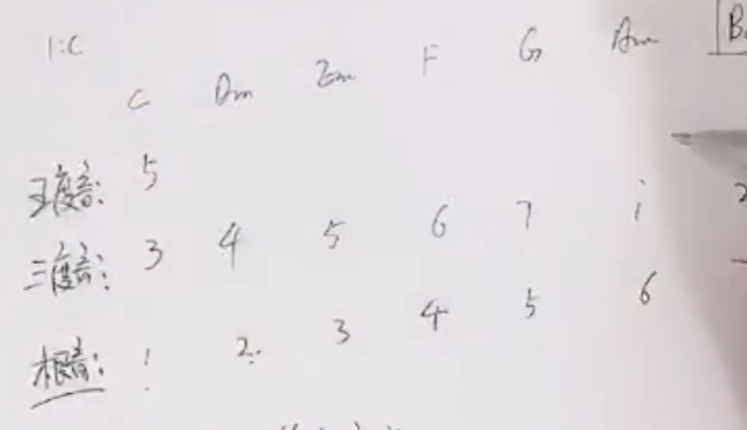 1:C
C Dm Em F G Am B
五度音: 5
三度音: 3 4 5 6 7 i
根音: 1 2 3 4 5 6